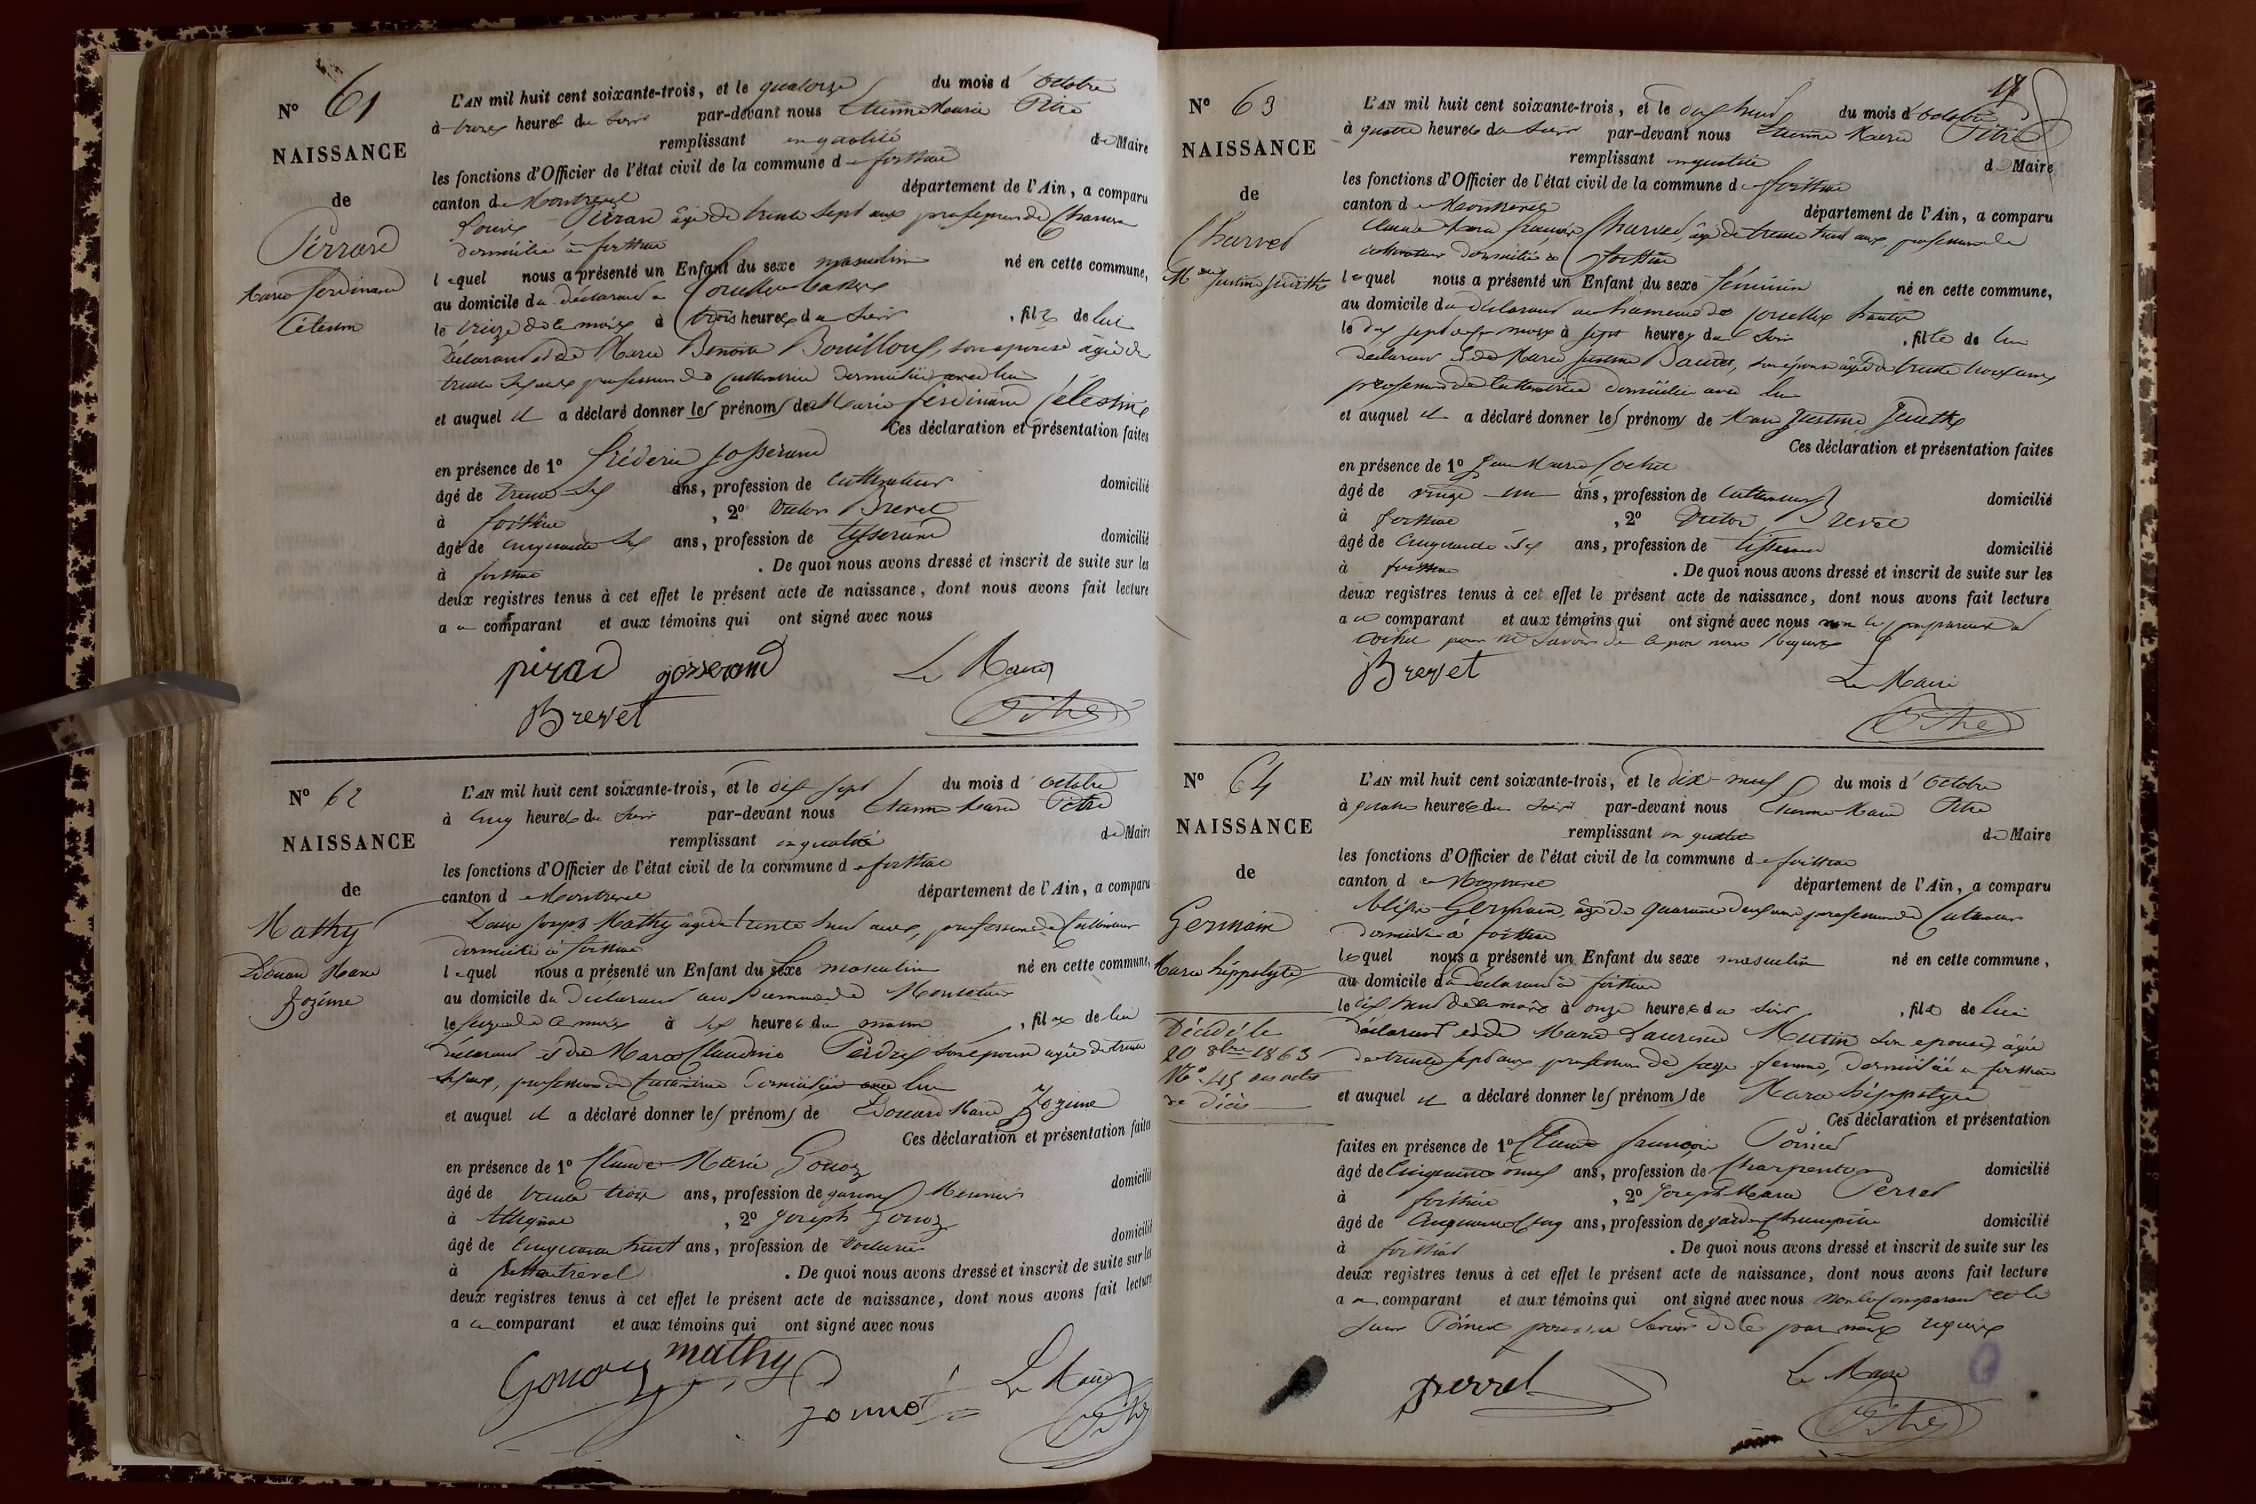 N° 61
NAISSANCE
de
Pirrard
Marie ferdinand
Célestin
L'AN mil huit cent soixante-trois, et le quatorze du mois d'octobre
à trois heures du soir par-devant nous Etienne Marie Pitre
remplissant en qualité de Maire
les fonctions d'Officier de l'état civil de la commune de foissiat
canton de Montrevel département de l'Ain, a comparu
Louis Pirrard âgé de trente sept ans profession de
domicilié à foissiat
lequel nous a présenté un Enfant du sexe masculin né en cette commune,
au domicile du déclarant
le treize de ce mois à trois heures du soir, fils de lui
déclarant et de Marie Benoite Bouilloux, son épouse âgée de
trente six ans profession de cultivatrice domiciliée avec lui
et auquel il a déclaré donner les prénoms de Marie ferdinand Célestin
Ces déclaration et présentation faites
en présence de 1° frédéric Josserand
âgé de trente-six ans, profession de cultivateur domicilié
à foissiat, 2° Victor Brevet
âgé de cinquante six ans, profession de tisserand domicilié
à foissiat. De quoi nous avons dressé et inscrit de suite sur les
deux registres tenus à cet effet le présent acte de naissance, dont nous avons fait lecture
au comparant et aux témoins qui ont signé avec nous
pirad josserand Le Maire
Brevet Pitre
N° 62
NAISSANCE
de
Mathy
Edouard Marie
Zozime
L'AN mil huit cent soixante-trois, et le dix sept du mois d'octobre
à cinq heures du soir par-devant nous Etienne Marie Pitre
remplissant en qualité de Maire
les fonctions d'Officier de l'état civil de la commune de foissiat
canton de Montrevel département de l'Ain, a comparu
Joseph Mathy âgé de trente huit ans, profession de Cultivateur
domicilié à foissiat
lequel nous a présenté un Enfant du sexe masculin né en cette commune,
au domicile du déclarant au hameau de
le seize de ce mois à six heures du matin, fils de lui
déclarant et de Marie Claudine Perdrix son épouse âgée de trente
six ans, profession de cultivatrice domiciliée avec lui
et auquel il a déclaré donner les prénoms de Edouard Marie Zozime
Ces déclaration et présentation faites
en présence de 1° Claude Marie Gonoz
âgé de trente trois ans, profession de garçon Meunier domicilié
à Attignat, 2° Joseph Gonoz
âgé de cinquante huit ans, profession de domicilié
à Montrevel. De quoi nous avons dressé et inscrit de suite sur les
deux registres tenus à cet effet le présent acte de naissance, dont nous avons fait lecture
au comparant et aux témoins qui ont signé avec nous
Gonoz mathy Le Maire
Pitre
17
N° 63
NAISSANCE
de
Charvet
Mie Justine Judith
L'AN mil huit cent soixante-trois, et le dix huit du mois d'octobre
à quatre heures du soir par-devant nous Etienne Marie Pitre
remplissant en qualité de Maire
les fonctions d'Officier de l'état civil de la commune de foissiat
canton de Montrevel département de l'Ain, a comparu
Claude Marie françois Charvet, âgé de trente huit ans, profession de
cultivateur domicilié à foissiat
lequel nous a présenté un Enfant du sexe féminin né en cette commune,
au domicile du déclarant au hameau de
le dix sept de ce mois à sept heures du soir, fille de lui
déclarant et de Marie Justine son épouse âgée de trente trois ans
profession de cultivatrice domiciliée avec lui
et auquel il a déclaré donner les prénoms de Marie Justine Judith
Ces déclaration et présentation faites
en présence de 1° Jean Marie Cochet
âgé de vingt-un ans, profession de cultivateur domicilié
à foissiat, 2° Victor Brevet
âgé de cinquante-six ans, profession de tisserand domicilié
à foissiat. De quoi nous avons dressé et inscrit de suite sur les
deux registres tenus à cet effet le présent acte de naissance, dont nous avons fait lecture
au comparant et aux témoins qui ont signé avec nous non le comparant et
Cochet pour ne savoir de ce par nous requis
Brevet Le Maire
Pitre
N° 64
NAISSANCE
de
Germain
Marie hippolyte
Décédé le
20 8bre 1863
N° 45 des actes
de décès
L'AN mil huit cent soixante-trois, et le dix-neuf du mois d'octobre
à quatre heures du soir par-devant nous Etienne Marie Pitre
remplissant en qualité de Maire
les fonctions d'Officier de l'état civil de la commune de foissiat
canton de Montrevel département de l'Ain, a comparu
Germain, âgé de quarante deux ans profession de Cultivateur
domicilié à foissiat
lequel nous a présenté un Enfant du sexe masculin né en cette commune,
au domicile du déclarant à foissiat
le dix huit de ce mois à onze heures du soir, fils de lui
déclarant et de Marie Laurence Mutin son épouse âgée
de trente sept ans profession de sage femme, domiciliée à foissiat
et auquel il a déclaré donner les prénoms de Marie hippolyte
Ces déclaration et présentation
faites en présence de 1° Claude françois Poirier
âgé de cinquante neuf ans, profession de Charpentier domicilié
à foissiat, 2° Joseph Marie Perret
âgé de cinquante cinq ans, profession de garde Champêtre domicilié
à foissiat. De quoi nous avons dressé et inscrit de suite sur les
deux registres tenus à cet effet le présent acte de naissance, dont nous avons fait lecture
au comparant et aux témoins qui ont signé avec nous non le comparant et le
sieur pour ne savoir de ce par nous requis
perret Le Maire
Pitre